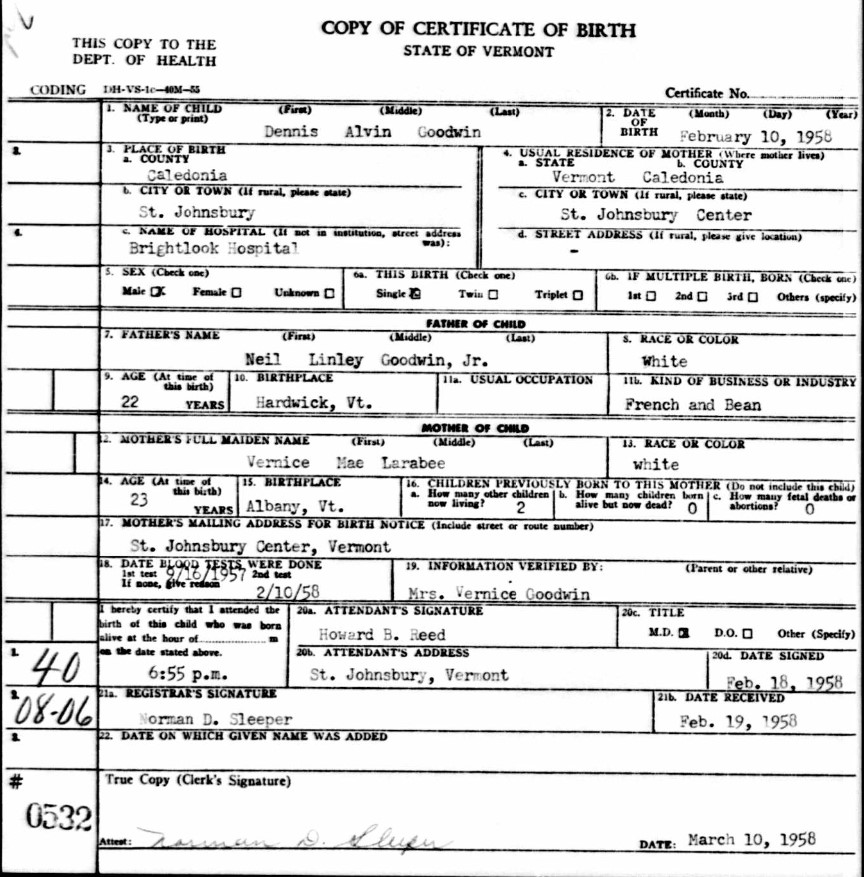 COPY OF CERTIFICATE OF BIRTH
STATE OF VERMONT
THIS COPY TO THE
DEPT. OF HEALTH
CODING DH-VS-1c—40M—55
Certificate No.
1. NAME OF CHILD (First) (Middle) (Last)
(Type or print)
Dennis Alvin Goodwin
2. DATE OF BIRTH (Month) (Day) (Year)
February 10, 1958
3. PLACE OF BIRTH
a. COUNTY
Caledonia
4. USUAL RESIDENCE OF MOTHER (Where mother lives)
a. STATE b. COUNTY
Vermont Caledonia
b. CITY OR TOWN (If rural, please state)
St. Johnsbury
c. CITY OR TOWN (If rural, please state)
St. Johnsbury Center
c. NAME OF HOSPITAL (If not in institution, street address
was):
Brightlook Hospital
d. STREET ADDRESS (If rural, please give location)
-
5. SEX (Check one)
Male ☒ Female ☐ Unknown ☐
6a. THIS BIRTH (Check one)
Single ☒ Twin ☐ Triplet ☐
6b. IF MULTIPLE BIRTH, BORN (Check one)
1st ☐ 2nd ☐ 3rd ☐ Others (specify)
FATHER OF CHILD
7. FATHER'S NAME (First) (Middle) (Last)
Neil Linley Goodwin, Jr.
8. RACE OR COLOR
White
9. AGE (At time of
this birth)
22 YEARS
10. BIRTHPLACE
Hardwick, Vt.
11a. USUAL OCCUPATION
11b. KIND OF BUSINESS OR INDUSTRY
French and Bean
MOTHER OF CHILD
12. MOTHER'S FULL MAIDEN NAME (First) (Middle) (Last)
Vernice Mae Larabee
13. RACE OR COLOR
white
14. AGE (At time of
this birth)
23 YEARS
15. BIRTHPLACE
Albany, Vt.
16. CHILDREN PREVIOUSLY BORN TO THIS MOTHER (Do not include this child)
a. How many other children
now living? 2
b. How many children born
alive but now dead? 0
c. How many fetal deaths or
abortions? 0
17. MOTHER'S MAILING ADDRESS FOR BIRTH NOTICE (Include street or route number)
St. Johnsbury Center, Vermont
18. DATE BLOOD TESTS WERE DONE
1st test 9/16/1957 2nd test
If none, give reason
2/10/58
19. INFORMATION VERIFIED BY: (Parent or other relative)
Mrs. Vernice Goodwin
I hereby certify that I attended the
birth of this child who was born
alive at the hour of m
on the date stated above.
6:55 p.m.
20a. ATTENDANT'S SIGNATURE
Howard B. Reed
20c. TITLE
M.D. ☒ D.O. ☐ Other (Specify)
20b. ATTENDANT'S ADDRESS
St. Johnsbury, Vermont
20d. DATE SIGNED
Feb. 18, 1958
1.
40
2.
08-06
21a. REGISTRAR'S SIGNATURE
Norman D. Sleeper
21b. DATE RECEIVED
Feb. 19, 1958
3.
22. DATE ON WHICH GIVEN NAME WAS ADDED
#
0532
True Copy (Clerk's Signature)
Attest: Norman D. Sleeper
DATE: March 10, 1958